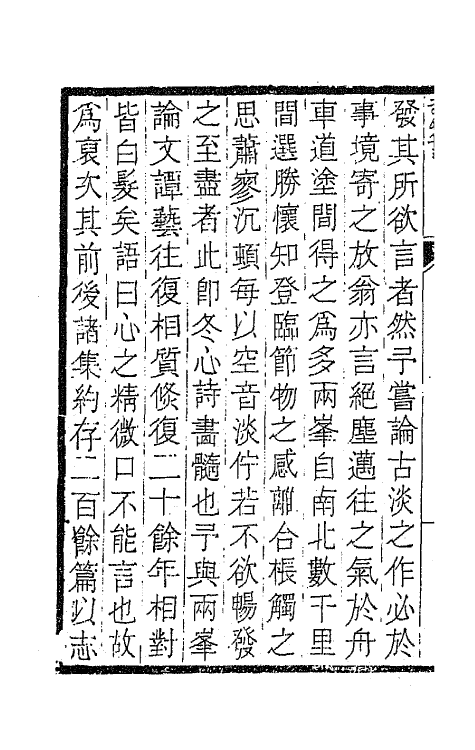 發其所欲言者然予嘗論古淡之作必於
事境寄之放翁亦言絕塵邁往之氣於舟
車道塗間得之為多兩峯自南北數千里
間選勝懷知登臨節物之感離合棖觸之
思蕭寥沉頓每以空音淡佇若不欲暢發
之至盡者此卽冬心詩畵髓也予與兩峯
論文譚藝往復相質倐復二十餘年相對
皆白髮矣語曰心之精微口不能言也故
為裒次其前後諸集約存二百餘篇以志